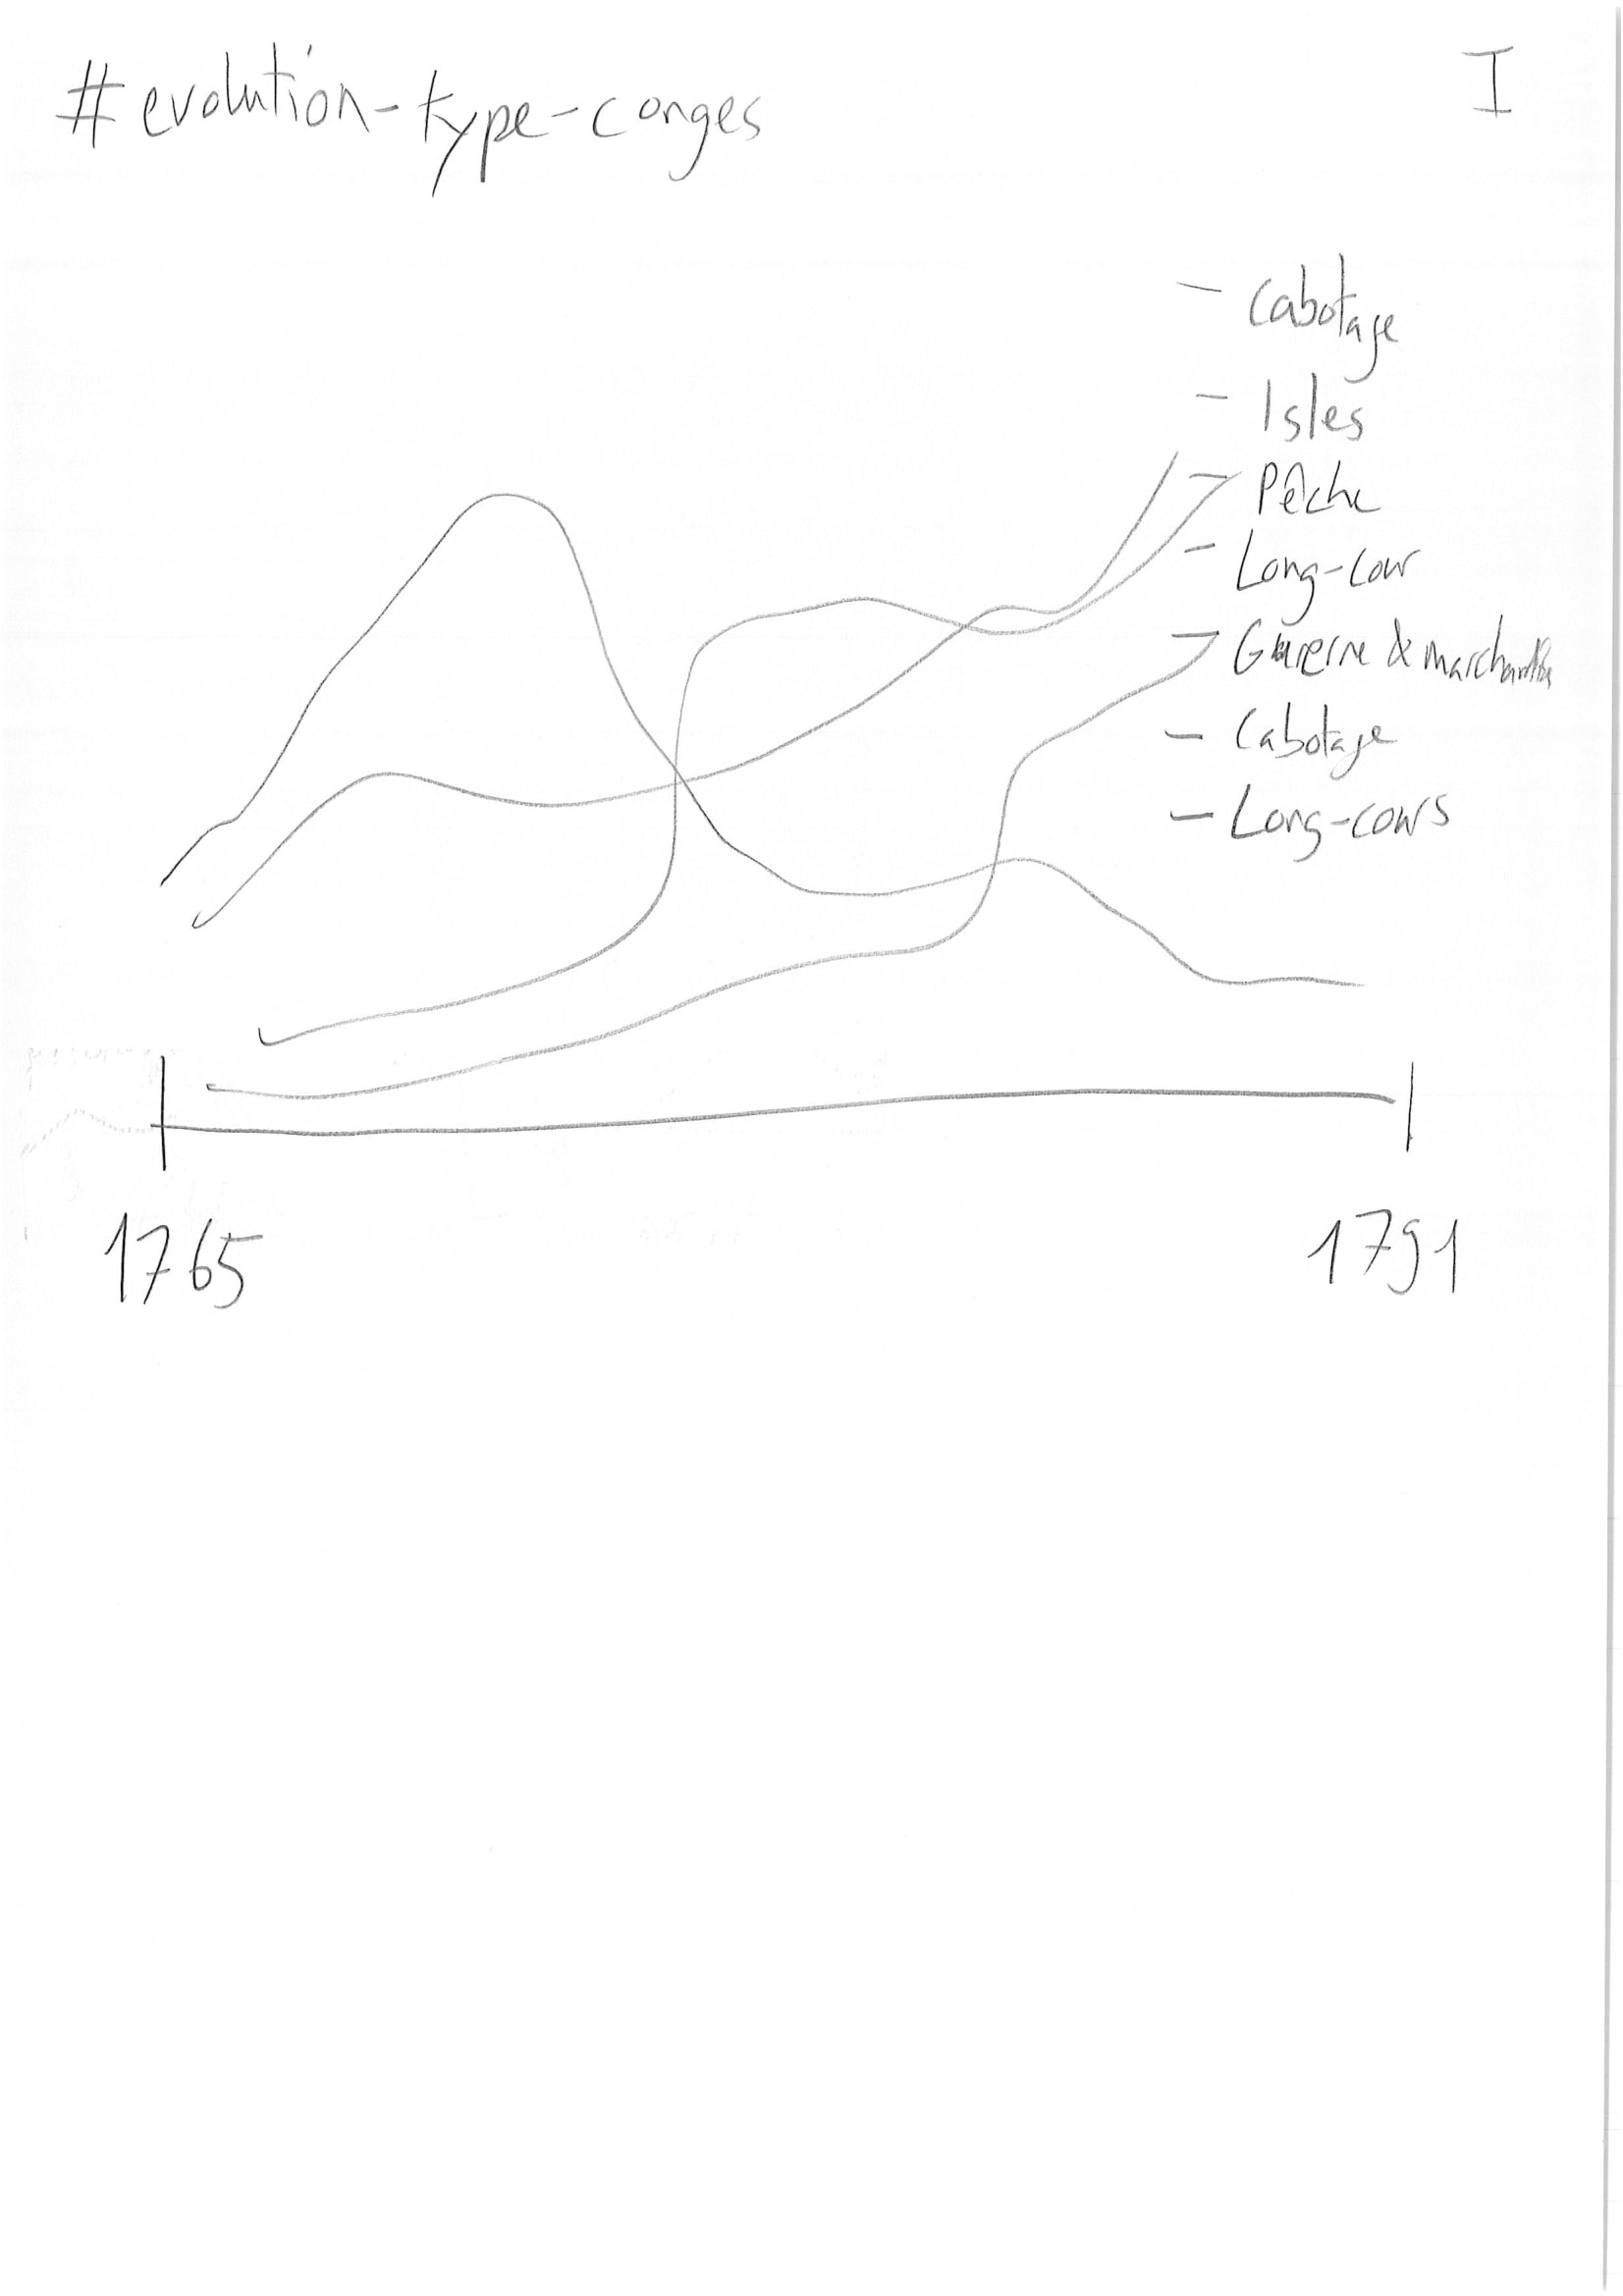 #evolution-type-conges
I
- Cabotage
- Isles
- Pêche
- Long-cour
- & marchandises
- Cabotage
- Long-cours
1765
1791